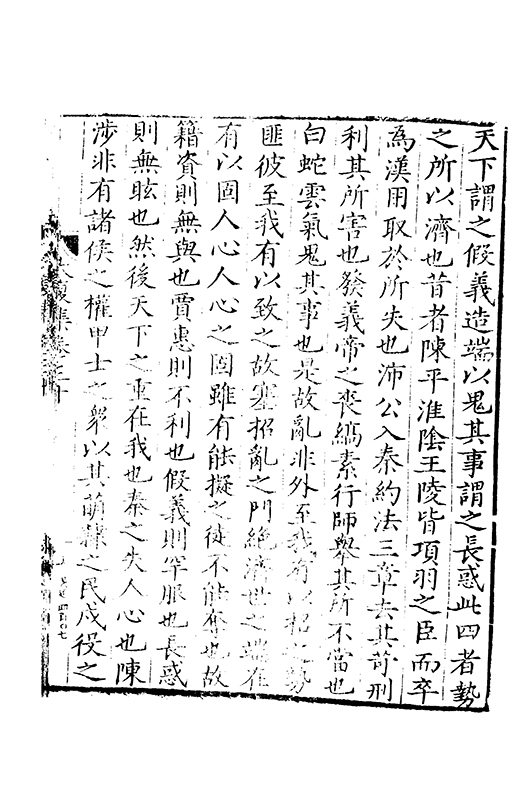 天下謂之假義造端以鬼其事謂之長惑此四者勢
之所以濟也昔者陳平淮陰王陵皆項羽之臣而卒
為漢用取於所失也沛公入秦約法三章去其苛刑
利其所害也發義帝之喪縞素行師舉其所不當也
白蛇雲氣鬼其事也是故亂非外至我有以招之勢
匪彼至我有以致之故塞招亂之門絶濟世之端在
有以固人心人心之固雖有能擬之徒不能奪也故
籍資則無與也賈惠則不利也假義則罕服也長惑
則無眩也然後天下之重在我也秦之失人心也陳
涉非有諸侯之權甲士之衆以其萌隸之民戍役之
復集卷之十
四百〇七